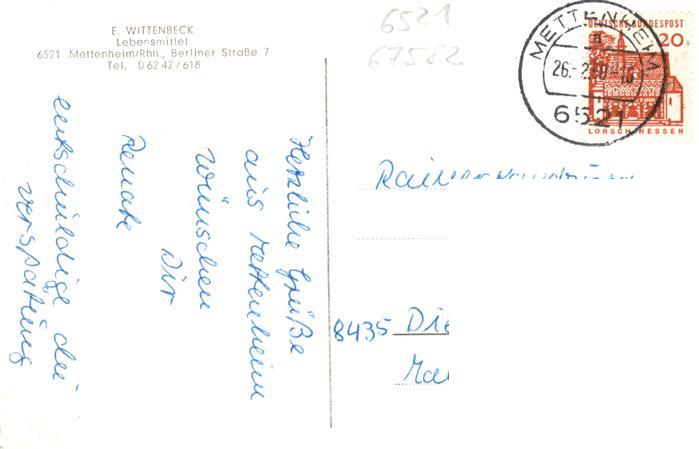 E. WITTENBECK
Lebensmittel
6521 Mettenheim/Rhh., Berliner Straße 7
Tel. 0 62 42 / 618
6521
67582
METTENHEIM
26.-2.
6521
DEUTSCHE BUNDESPOST
20
LORSCH/HESSEN
Herzliche Grüße
aus Mettenheim
wünschen
Dir
Renate
entschuldige die
verspätung
Rainer
8435 Die